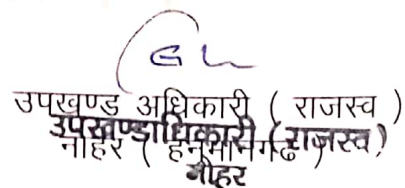 उपखण्ड अधिकारी ( राजस्व )
उपखण्डाधिकारी (राजस्व)
नोहर ( हनुमानगढ )
नोहर